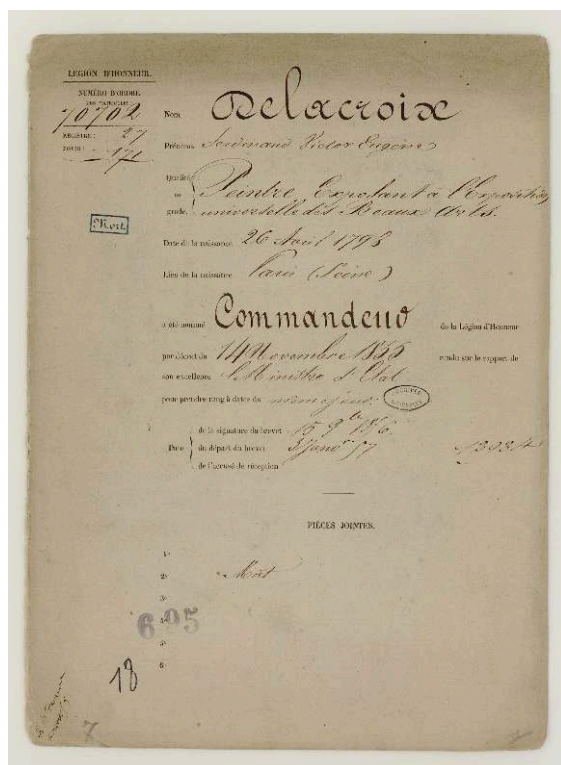 LÉGION D'HONNEUR.
NUMÉRO D'ORDRE
DES MATRICULES
70702
REGISTRE : 27
FOLIO : 171
Nom Delacroix
Prénoms Ferdinand Victor Eugène
Qualité ou grade. Peintre, Exposant à l'Exposition
universelle des Beaux Arts.
Mort
Date de la naissance 26 Avril 1798
Lieu de la naissance Paris (Seine)
a été nommé Commandeur de la Légion d'Honneur
par décret du 14 Novembre 1855 rendu sur le rapport de
son excellence le Ministre d'État
pour prendre rang à dater du même jour.
Date de la signature du brevet 15 9bre 1856
du départ du brevet
de l'accusé de réception
PIÈCES JOINTES.
1°
2° Mort
3°
4°
5°
6°
695
18
7